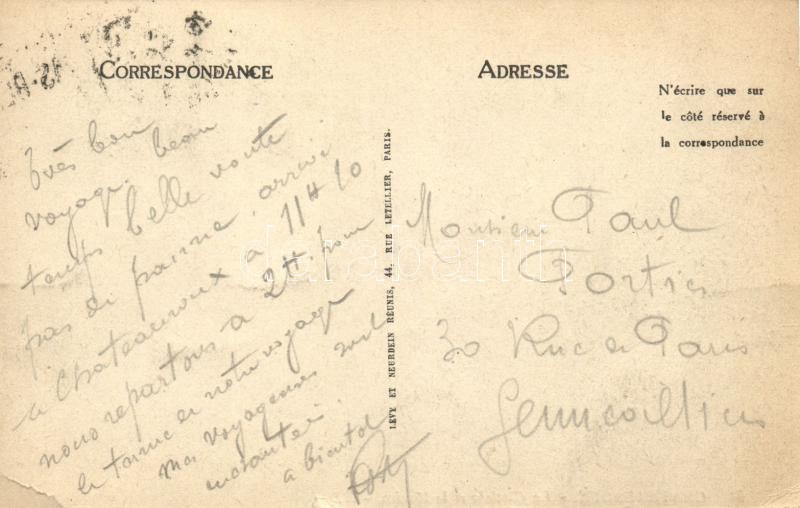 CORRESPONDANCE
Très bon
voyage. beau
temps belle route
pas de panne, arrivé
a Chateauroux a 11H10
nous repartons a 2H. pour
notre voyage
mes voyageuses sont
a bientot
LEVY ET NEURDEIN RÉUNIS, 44, RUE LETELLIER, PARIS.
ADRESSE
N'écrire que sur
le côté réservé à
la correspondance
Monsieur Paul
Portier
30 Rue de Paris
Gennevilliers
darabanth